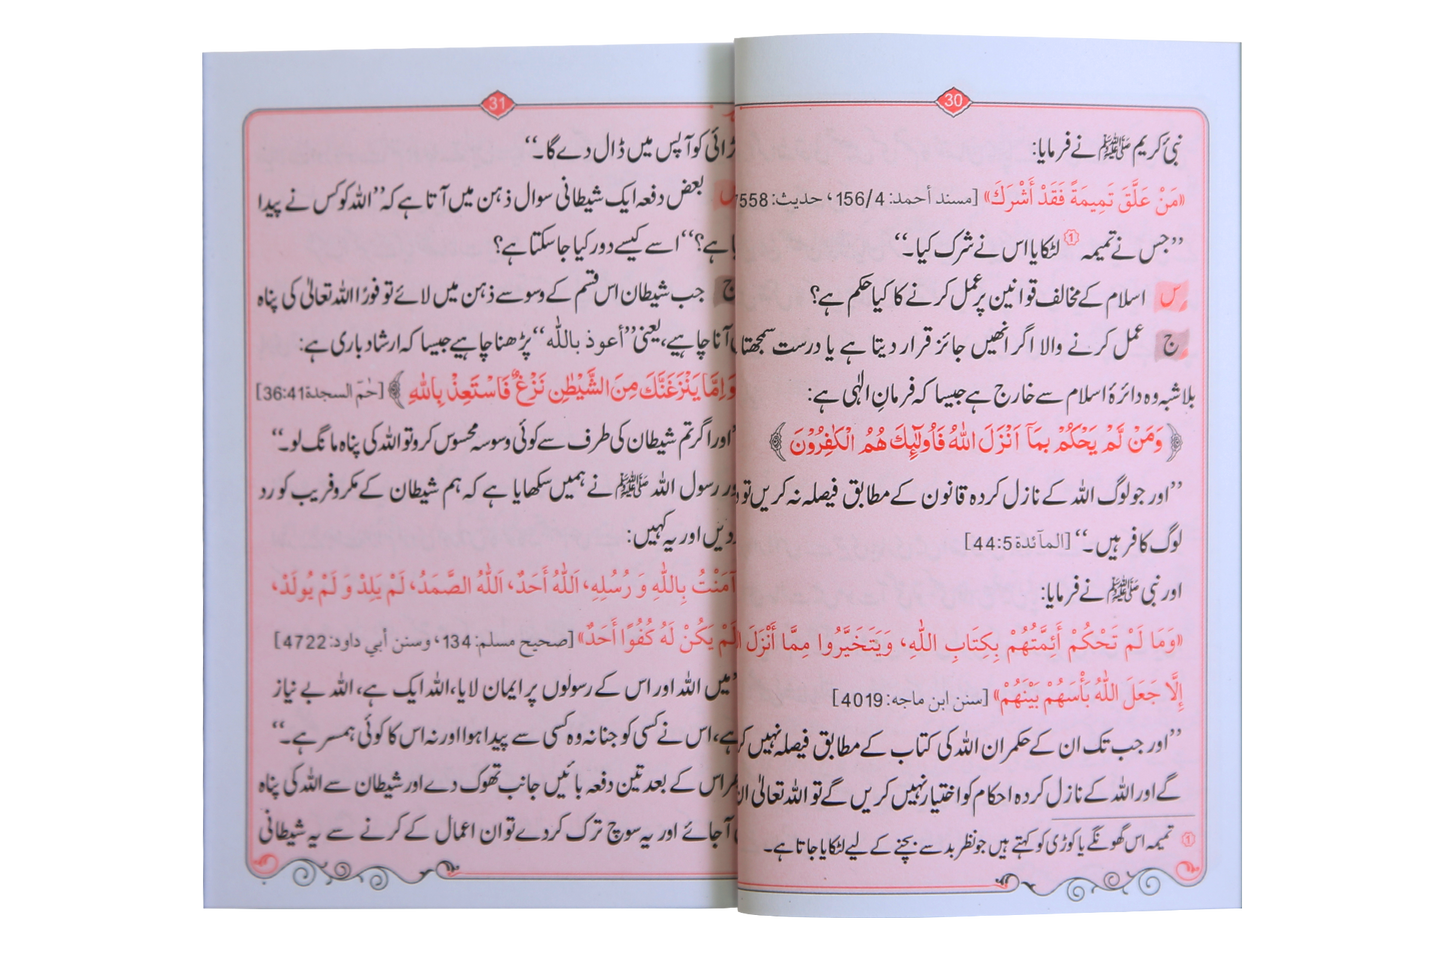 30
نبیٔ کریم ﷺ نے فرمایا:
«مَنْ عَلَّقَ تَمِيمَةً فَقَدْ أَشْرَكَ» [مسند أحمد: 156/4، حديث: 7558
’’جس نے تمیمہ ① لٹکایا اس نے شرک کیا۔‘‘
س اسلام کے مخالف قوانین پر عمل کرنے کا کیا حکم ہے؟
ج عمل کرنے والا اگر انھیں جائز قرار دیتا ہے یا درست سمجھتا
بلاشبہ وہ دائرۂ اسلام سے خارج ہے جیسا کہ فرمانِ الٰہی ہے:
﴿وَمَنْ لَّمْ يَحْكُمْ بِمَآ اَنْزَلَ اللّٰهُ فَاُولٰٓئِكَ هُمُ الْكٰفِرُوْنَ﴾
’’اور جو لوگ اللہ کے نازل کردہ قانون کے مطابق فیصلہ نہ کریں تو
لوگ کافر ہیں۔‘‘ [المآئدة 44:5]
اور نبی ﷺ نے فرمایا:
«وَمَا لَمْ تَحْكُمْ أَئِمَّتُهُمْ بِكِتَابِ اللّٰهِ، وَيَتَخَيَّرُوا مِمَّا أَنْزَلَ
إِلَّا جَعَلَ اللّٰهُ بَأْسَهُمْ بَيْنَهُمْ» [سنن ابن ماجه: 4019]
’’اور جب تک ان کے حکمران اللہ کی کتاب کے مطابق فیصلہ نہیں
گے اور اللہ کے نازل کردہ احکام کو اختیار نہیں کریں گے تو اللہ تعالیٰ ان
① تمیمہ اس گھونگے یا کوڑی کو کہتے ہیں جو نظر بد سے بچنے کے لیے لٹکایا جاتا ہے۔
31
ڑائی کو آپس میں ڈال دے گا۔‘‘
س بعض دفعہ ایک شیطانی سوال ذہن میں آتا ہے کہ ’’اللہ کو کس نے پیدا
ہے؟‘‘ اسے کیسے دور کیا جاسکتا ہے؟
ج جب شیطان اس قسم کے وسوسے ذہن میں لائے تو فوراً اللہ تعالیٰ کی پناہ
آنا چاہیے، یعنی ’’أعوذ بالله‘‘ پڑھنا چاہیے جیسا کہ ارشاد باری ہے:
وَاِمَّا يَنْزَغَنَّكَ مِنَ الشَّيْطٰنِ نَزْغٌ فَاسْتَعِذْ بِاللّٰهِ﴾ [حٰمٓ السجدة 36:41]
’’اور اگر تم شیطان کی طرف سے کوئی وسوسہ محسوس کرو تو اللہ کی پناہ مانگ لو۔‘‘
ور رسول اللہ ﷺ نے ہمیں سکھایا ہے کہ ہم شیطان کے مکر و فریب کو رد
ردیں اور یہ کہیں:
آمَنْتُ بِاللّٰهِ وَ رُسُلِهِ، اَللّٰهُ أَحَدٌ، اَللّٰهُ الصَّمَدُ، لَمْ يَلِدْ وَ لَمْ يُولَدْ،
لَمْ يَكُنْ لَهُ كُفُوًا أَحَدٌ» [صحيح مسلم: 134، وسنن أبي داود: 4722]
’’میں اللہ اور اس کے رسولوں پر ایمان لایا، اللہ ایک ہے، اللہ بے نیاز
ہے، اس نے کسی کو جنا نہ وہ کسی سے پیدا ہوا اور نہ اس کا کوئی ہمسر ہے۔‘‘
اس کے بعد تین دفعہ بائیں جانب تھوک دے اور شیطان سے اللہ کی پناہ
آ جائے اور یہ سوچ ترک کر دے تو ان اعمال کے کرنے سے یہ شیطانی